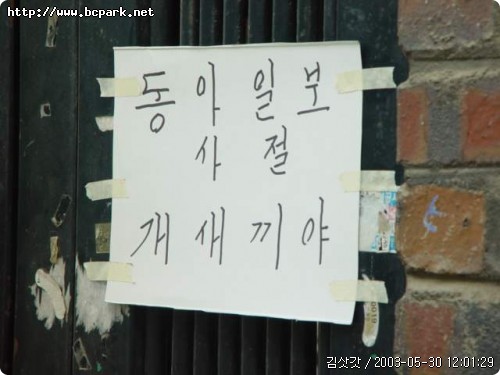 http://www.bcpark.net
동아일보
사절
개새끼야
김삿갓 / 2003-05-30 12:01:29